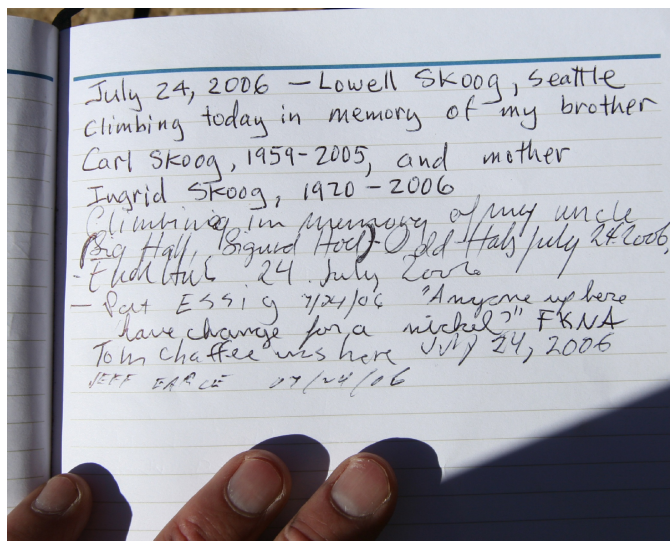 July 24, 2006 – Lowell Skoog, Seattle
Climbing today in memory of my brother
Carl Skoog, 1959-2005, and mother
Ingrid Skoog, 1920-2006
Climbing in memory of my uncle
Sig Hall, Sigurd July 24.2006,
- 24 July 2006
- Pat Essig 7/24/06 "Anyone up here
have change for a nickel?" FKNA
Tom Chaffee was here July 24, 2006
JEFF 07/24/06